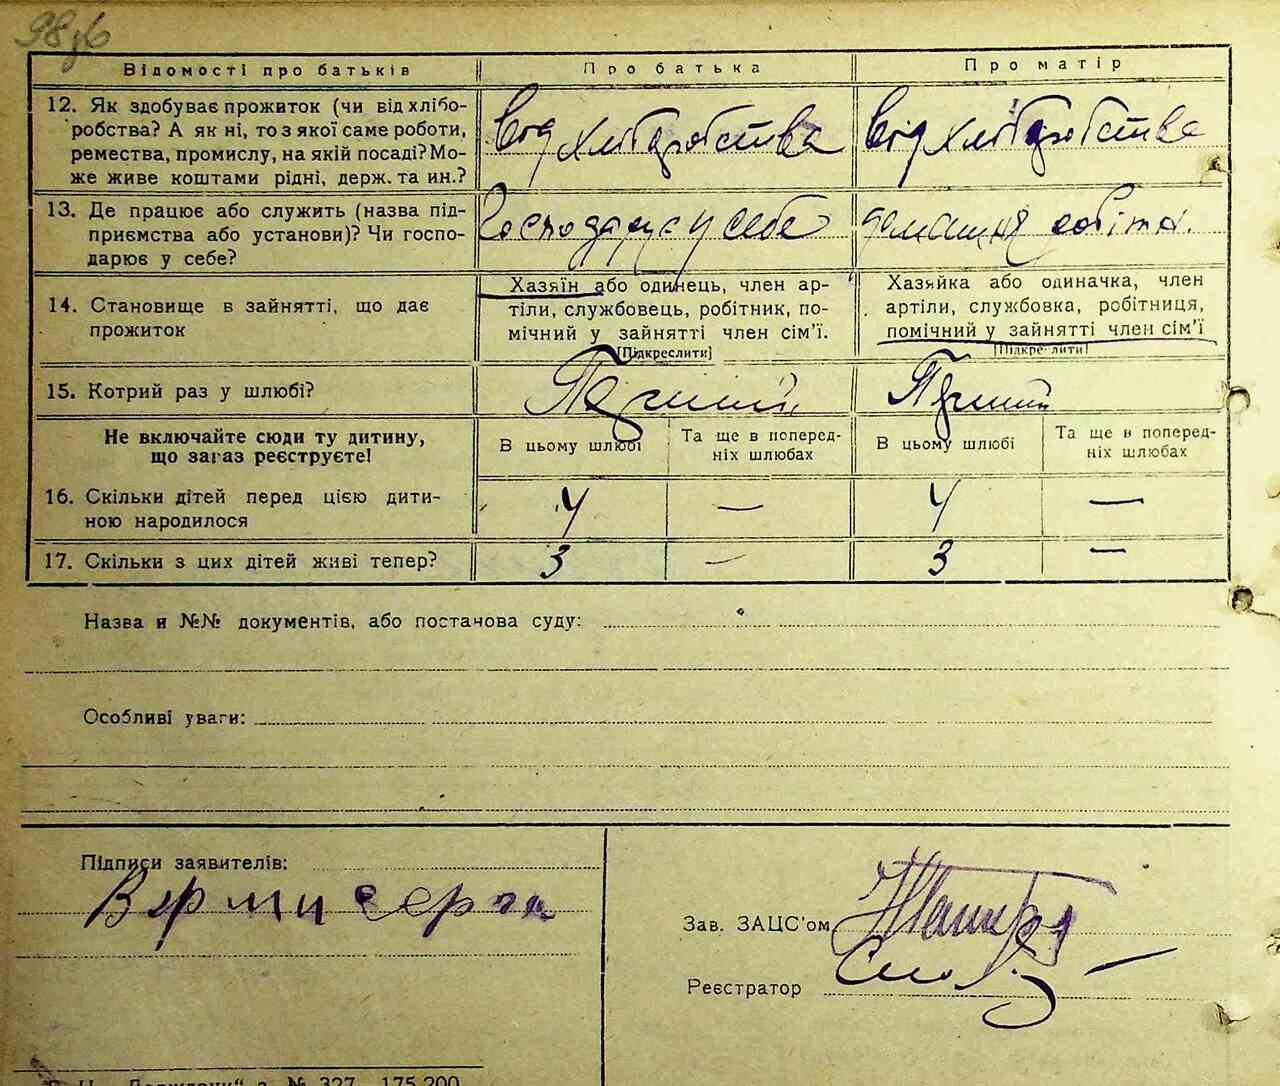 98зв
Відомості про батьків
Про батька
Про матір
12. Як здобуває прожиток (чи від хлібо-
робства? А як ні, то з якої саме роботи,
ремества, промислу, на якій посаді? Мо-
же живе коштами рідні, держ. та ин.?
від хліборобства
від хліборобства
13. Де працює або служить (назва під-
приємства або установи)? Чи госпо-
дарює у себе?
Господарує у себе
домашня робітн.
14. Становище в зайнятті, що дає
прожиток
Хазяїн або одинець, член ар-
тілі, службовець, робітник, по-
мічний у зайнятті член сім'ї.
[Підкреслити]
Хазяйка або одиначка, член
артілі, службовка, робітниця,
помічний у зайнятті член сім'ї
[Підкреслити]
15. Котрий раз у шлюбі?
Перший
Перший
Не включайте сюди ту дитину,
що зараз реєструєте!
В цьому шлюбі
Та ще в поперед-
ніх шлюбах
В цьому шлюбі
Та ще в поперед-
ніх шлюбах
16. Скільки дітей перед цією дити-
ною народилося
4 — 4 —
17. Скільки з цих дітей живі тепер?
3 — 3 —
Назва и №№ документів, або постанова суду:
Особливі уваги:
Підписи заявителів:
Зав. ЗАЦС'ом
Реєстратор
№ 327 175.200